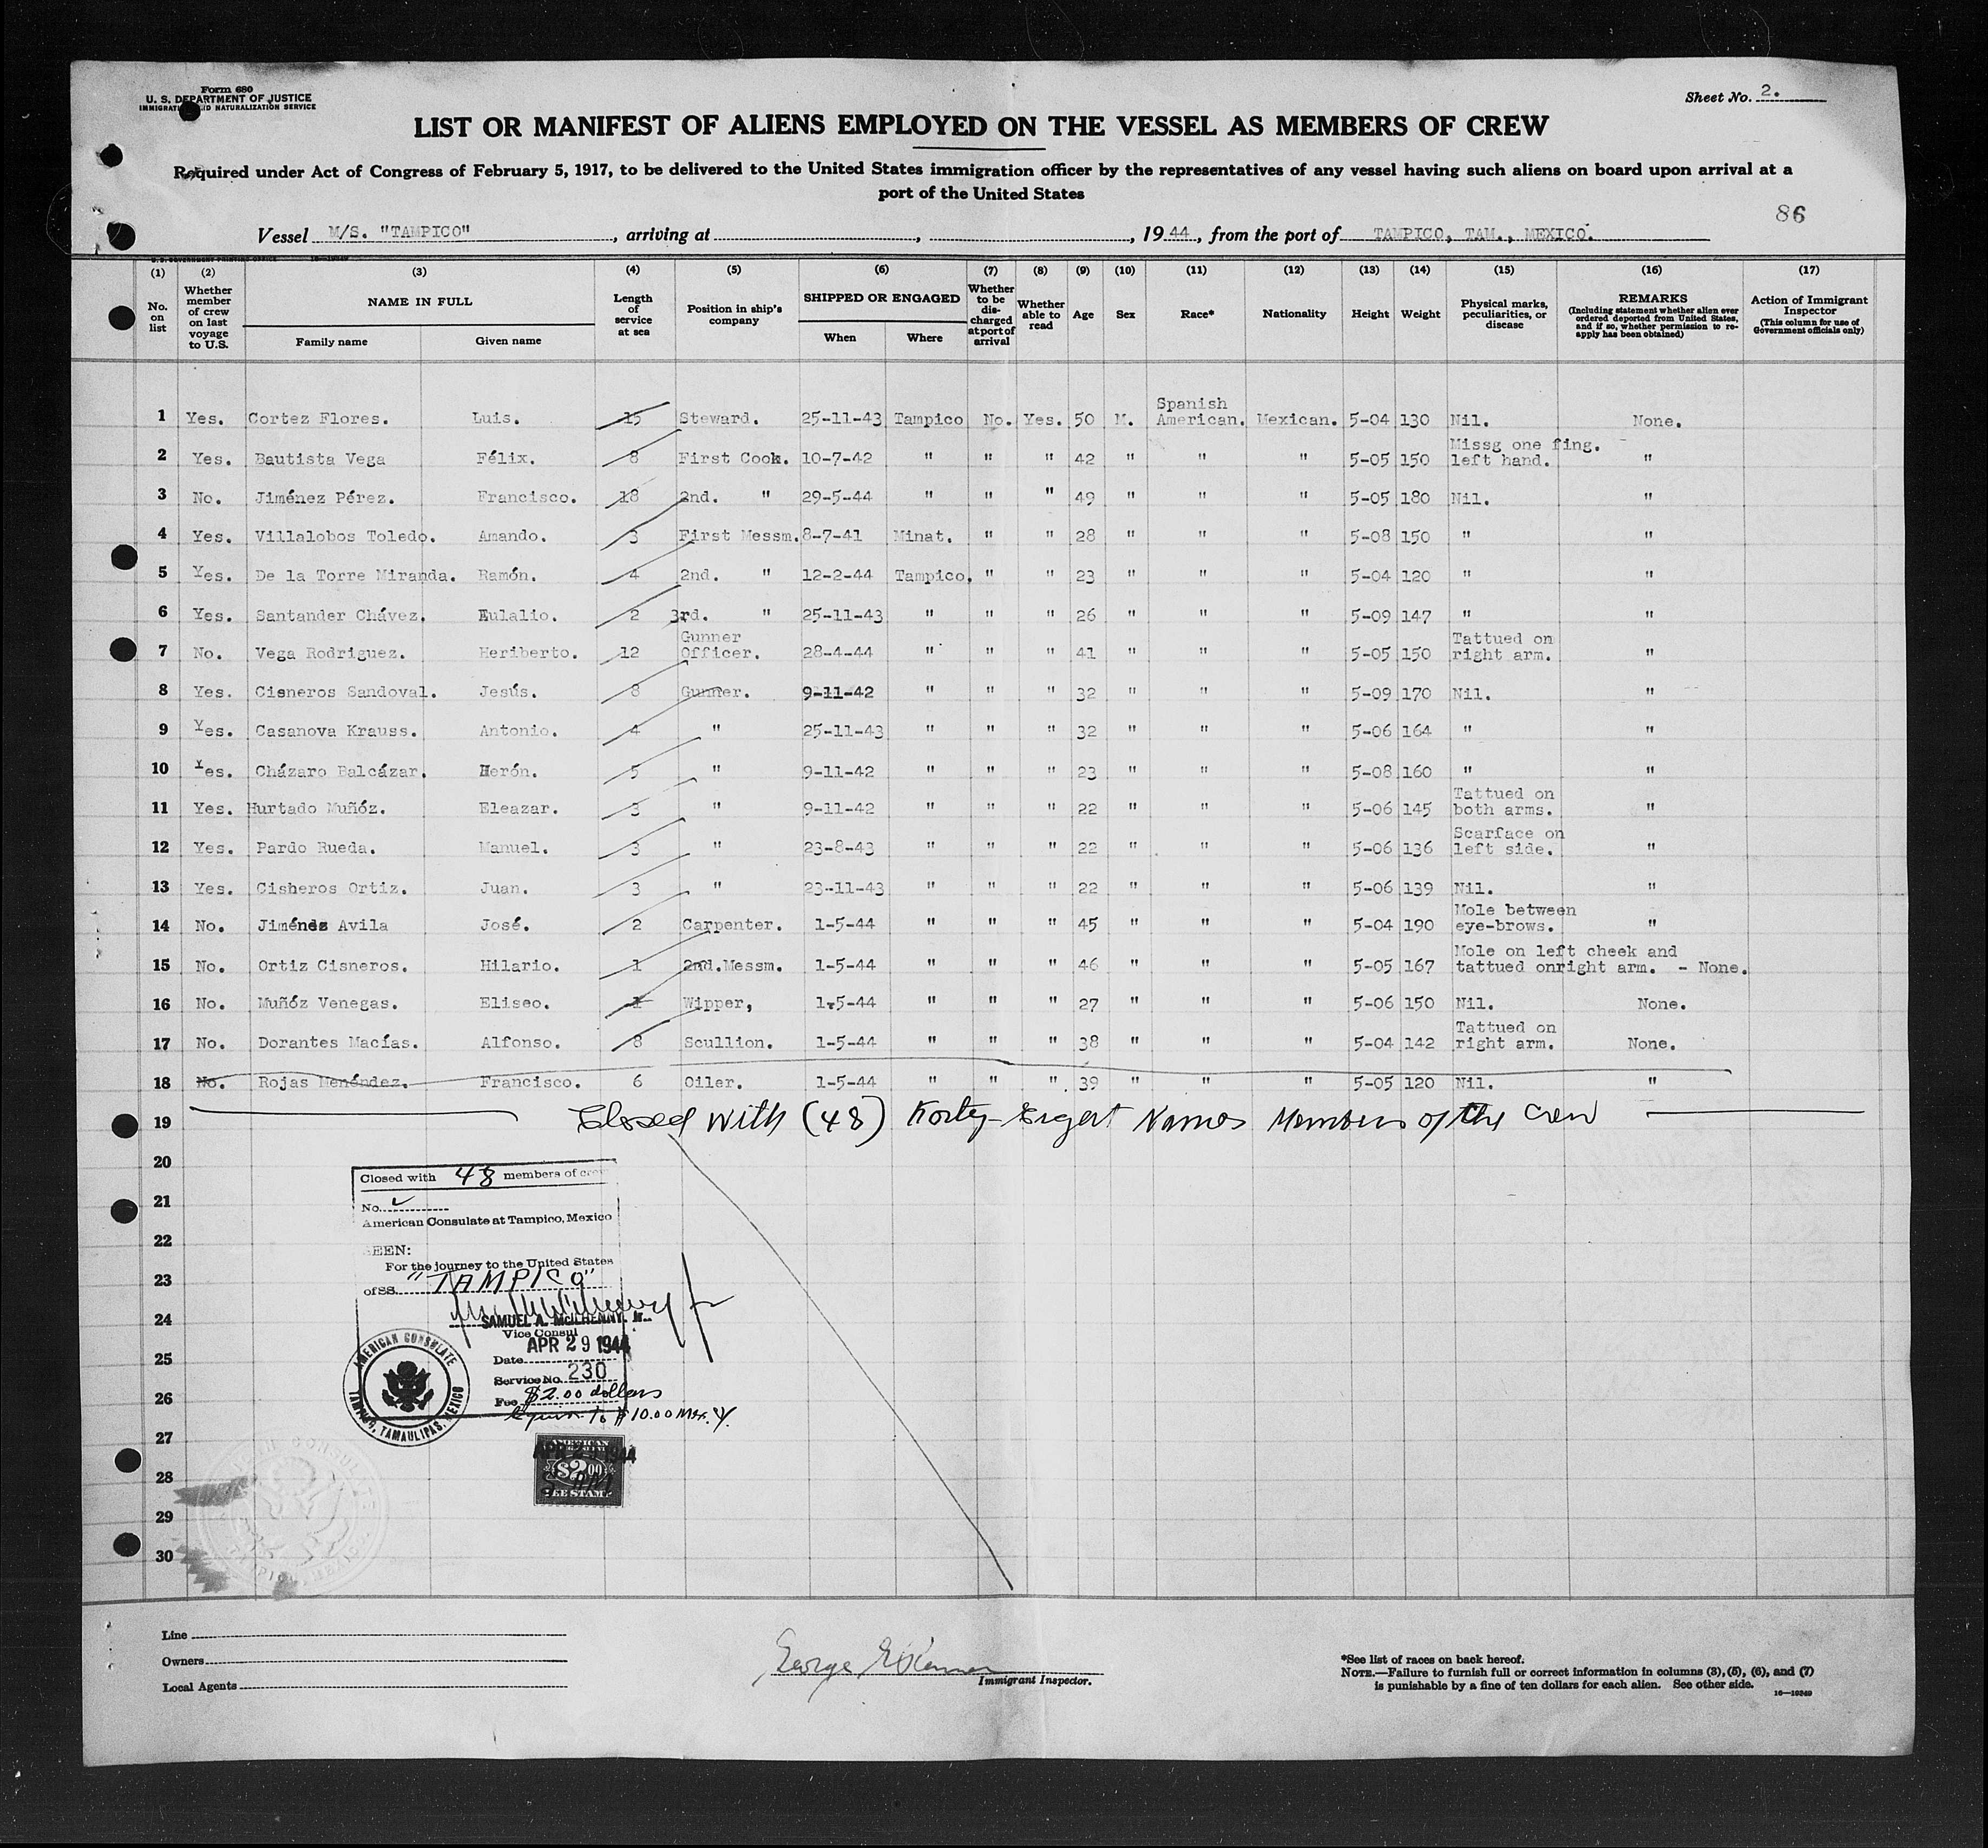 Form 680
U. S. DEPARTMENT OF JUSTICE
IMMIGRATION AND NATURALIZATION SERVICE
Sheet No. 2.
LIST OR MANIFEST OF ALIENS EMPLOYED ON THE VESSEL AS MEMBERS OF CREW
Required under Act of Congress of February 5, 1917, to be delivered to the United States immigration officer by the representatives of any vessel having such aliens on board upon arrival at a
port of the United States
86
Vessel M/S. "TAMPICO", arriving at , , 1944, from the port of TAMPICO, TAM., MEXICO.
U. S. GOVERNMENT PRINTING OFFICE 16—19349
(1) (2) (3) (4) (5) (6) (7) (8) (9) (10) (11) (12) (13) (14) (15) (16) (17)
No. on list
Whether member of crew on last voyage to U.S.
NAME IN FULL
Family name Given name
Length of service at sea
Position in ship's company
SHIPPED OR ENGAGED
When Where
Whether to be discharged at port of arrival
Whether able to read
Age
Sex
Race*
Nationality
Height
Weight
Physical marks, peculiarities, or disease
REMARKS
(Including statement whether alien ever ordered deported from United States, and if so, whether permission to re-apply has been obtained)
Action of Immigrant Inspector
(This column for use of Government officials only)
1 Yes. Cortez Flores. Luis. 15 Steward. 25-11-43 Tampico No. Yes. 50 M. Spanish American. Mexican. 5-04 130 Nil. None.
2 Yes. Bautista Vega Félix. 8 First Cook. 10-7-42 " " " 42 " " " 5-05 150 Missg one fing. left hand. "
3 No. Jiménez Pérez. Francisco. 18 2nd. " 29-5-44 " " " 49 " " " 5-05 180 Nil. "
4 Yes. Villalobos Toledo. Amando. 3 First Messm. 8-7-41 Minat. " " 28 " " " 5-08 150 " "
5 Yes. De la Torre Miranda. Ramón. 4 2nd. " 12-2-44 Tampico. " " 23 " " " 5-04 120 " "
6 Yes. Santander Chávez. Eulalio. 2 3rd. " 25-11-43 " " " 26 " " " 5-09 147 " "
7 No. Vega Rodriguez. Heriberto. 12 Gunner Officer. 28-4-44 " " " 41 " " " 5-05 150 Tattued on right arm. "
8 Yes. Cisneros Sandoval. Jesús. 8 Gunner. 9-11-42 " " " 32 " " " 5-09 170 Nil. "
9 Yes. Casanova Krauss. Antonio. 4 " 25-11-43 " " " 32 " " " 5-06 164 " "
10 Yes. Cházaro Balcázar. Herón. 5 " 9-11-42 " " " 23 " " " 5-08 160 " "
11 Yes. Hurtado Muñóz. Eleazar. 3 " 9-11-42 " " " 22 " " " 5-06 145 Tattued on both arms. "
12 Yes. Pardo Rueda. Manuel. 3 " 23-8-43 " " " 22 " " " 5-06 136 Scarface on left side. "
13 Yes. Cisheros Ortiz. Juan. 3 " 23-11-43 " " " 22 " " " 5-06 139 Nil. "
14 No. Jiménes Avila José. 2 Carpenter. 1-5-44 " " " 45 " " " 5-04 190 Mole between eye-brows. "
15 No. Ortiz Cisneros. Hilario. 1 2nd.Messm. 1-5-44 " " " 46 " " " 5-05 167 Mole on left cheek and tattued onright arm. - None.
16 No. Muñóz Venegas. Eliseo. 1 Wipper, 1-5-44 " " " 27 " " " 5-06 150 Nil. None.
17 No. Dorantes Macías. Alfonso. 8 Scullion. 1-5-44 " " " 38 " " " 5-04 142 Tattued on right arm. None.
18 No. Rojas Menéndez. Francisco. 6 Oiler. 1-5-44 " " ". 39 " " " 5-05 120 Nil. "
19 Closed with (48) Forty-Eight Names Members of the Crew
20
21
22
23
24
25
26
27
28
29
30
Closed with 48 members of crew
No.
American Consulate at Tampico, Mexico
SEEN:
For the journey to the United States
of SS. "TAMPICO"
SAMUEL A. McILHENNY, Jr.
Vice Consul
Date APR 29 1944
Service No. 230
Fee $2.00 dollars
Equiv. to $10.00 Mex. Cy.
AMERICAN CONSULATE
TAMPICO, TAMAULIPAS, MEXICO
AMERICAN
$2.00
FEE STAMP
Line
Owners
Local Agents
Immigrant Inspector.
*See list of races on back hereof.
NOTE.—Failure to furnish full or correct information in columns (3), (5), (6), and (7)
is punishable by a fine of ten dollars for each alien. See other side.
16—19349